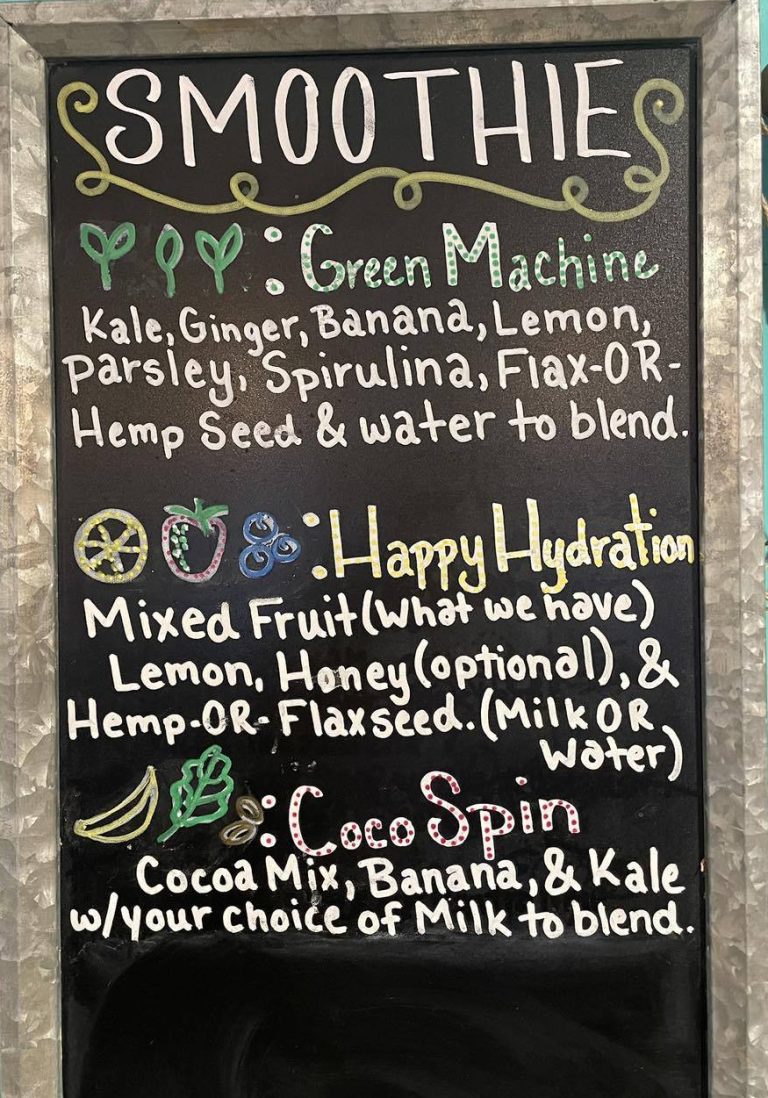 SMOOTHIE
: Green Machine
Kale, Ginger, Banana, Lemon,
Parsley, Spirulina, Flax-OR-
Hemp Seed & water to blend.
: Happy Hydration
Mixed Fruit (What we have)
Lemon, Honey (optional), &
Hemp-OR-Flaxseed. (Milk OR
Water)
: Coco Spin
Cocoa Mix, Banana, & Kale
w/your choice of Milk to blend.